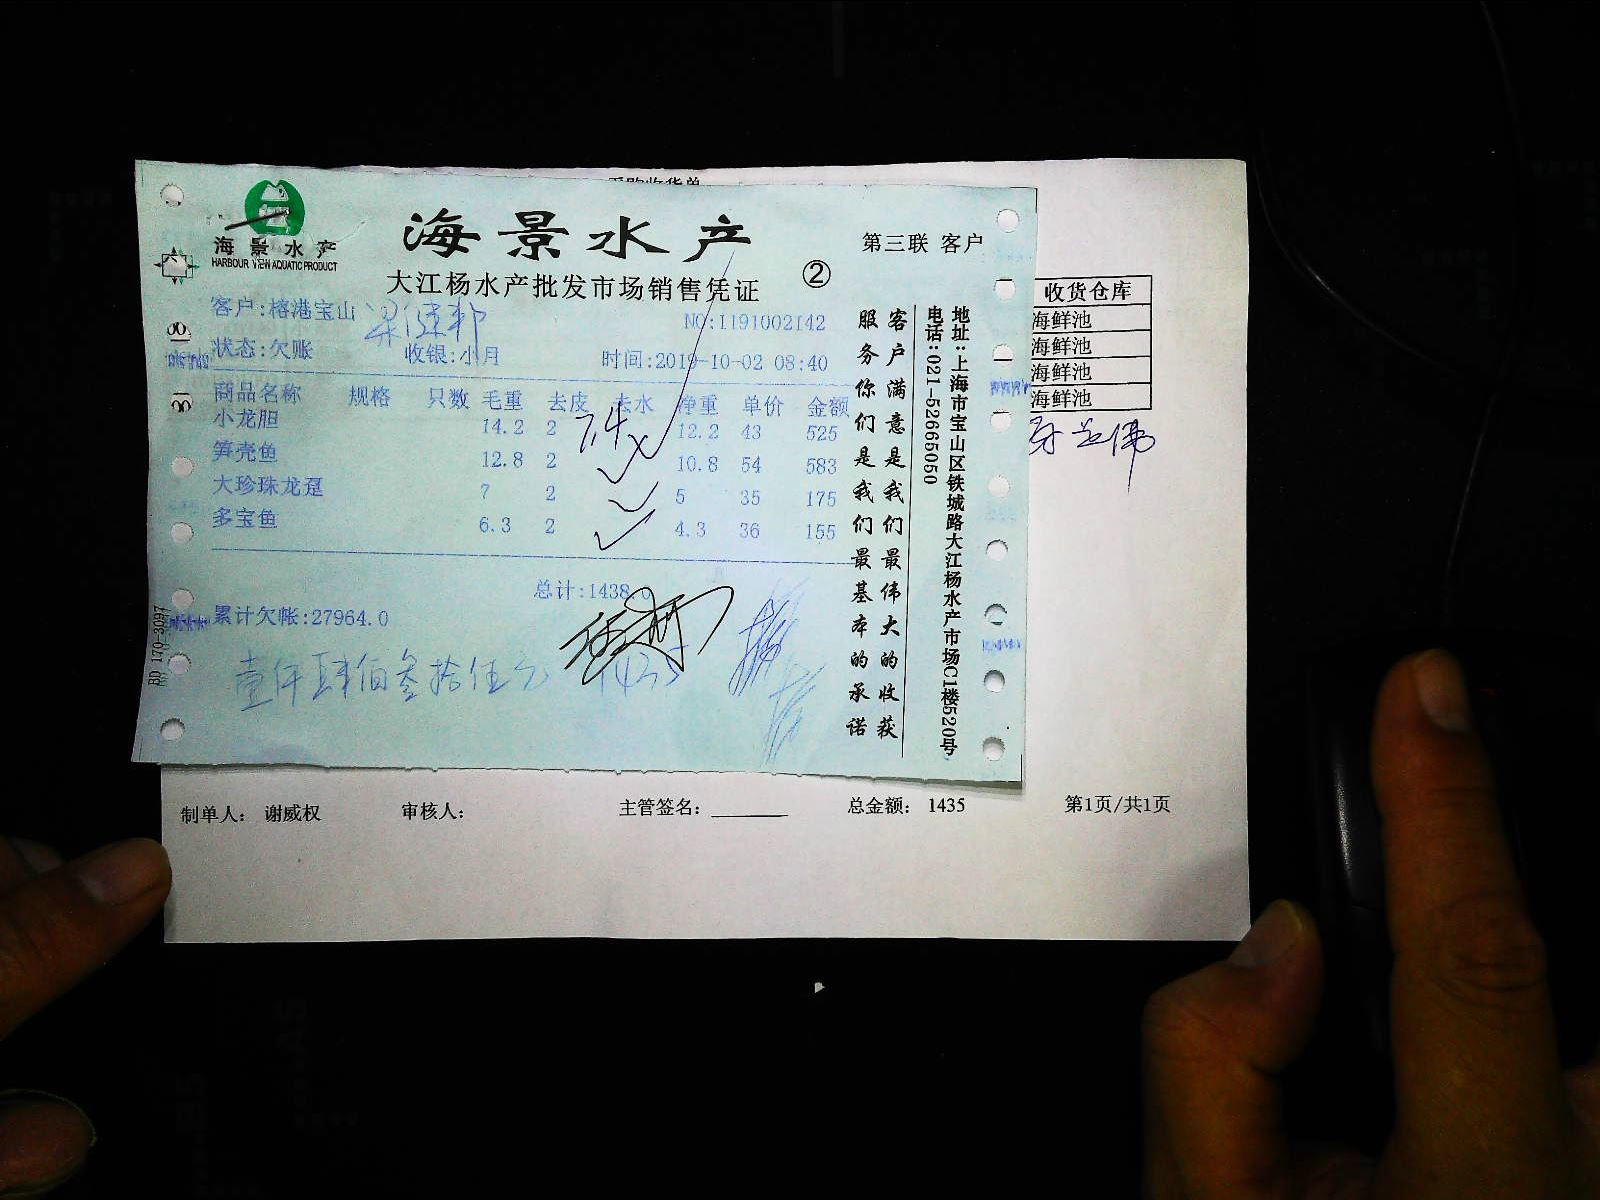 海景水产
HARBOUR VIEW AQUATIC PRODUCT
海景水产
大江杨水产批发市场销售凭证
②
第三联 客户
客户:榕港宝山
NO:1191002142
状态:欠账 收银:小月 时间:2019-10-02 08:40
商品名称 规格 只数 毛重 去皮 去水 净重 单价 金额
小龙胆 14.2 2 12.2 43 525
笋壳鱼 12.8 2 10.8 54 583
大珍珠龙趸 7 2 5 35 175
多宝鱼 6.3 2 4.3 36 155
7.4
总计:1438.0
累计欠帐:27964.0
壹仟肆佰叁拾伍元 1435
客户满意是我们最伟大的收获
服务你们是我们最基本的承诺
地址:上海市宝山区铁城路大江杨水产市场C1楼520号
电话:021-52665050
BD 170-3097
采购收货单
收货仓库
海鲜池
海鲜池
海鲜池
海鲜池
制单人: 谢威权 审核人: 主管签名: 总金额: 1435 第1页/共1页